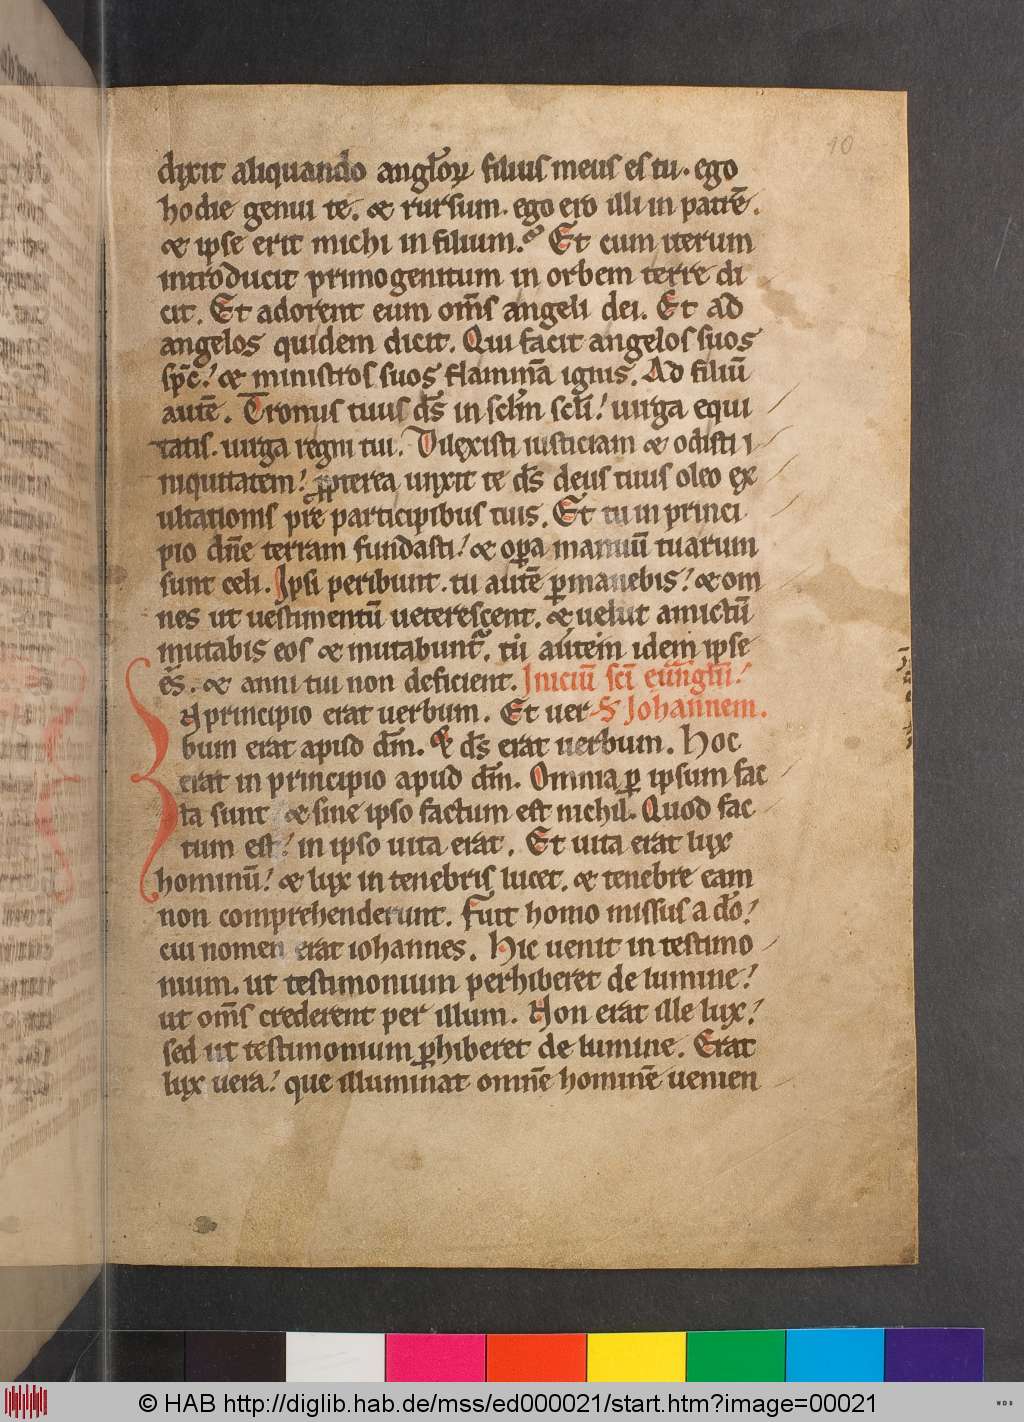 10
dixit aliquando angl̄oꝝ filius meus es tu. ego
hodie genui te. ⁊ rursum. ego ero illi in patrē.
⁊ ipse erit michi in filium. Et cum iterum
introducit primogenitum in orbem terre di
cit. Et adorent eum om̄s angeli dei. Et ad
angelos quidem dicit. Qui facit angelos suos
sp̄c! ⁊ ministros suos flammā ignis. Ad filiū
autē. Tronus tuus d̄s in scl̄m scl̄i! uirga equi
tatis. uirga regni tui. Dilexisti iusticiam ⁊ odisti i
niquitatem! ꝓpterea unxit te d̄s deus tuus oleo ex
ultationis pre participibus tuis. Et tu in princi
pio dn̄e terram fundasti! ⁊ oꝑa manuū tuarum
sunt celi. Ipsi peribunt. tu autē ꝑmanebis! ⁊ om
nes ut uestimentū ueterescent. ⁊ uelut amictū
mutabis eos ⁊ mutabunt᷑. tu autem idem ipse
es. ⁊ anni tui non deficient. Iniciū sc̄i euu̅gl̅ii!
N principio erat uerbum. Et uer S Johannem.
bum erat apud dm̄. ⁊ d̄s erat uerbum. Hoc
erat in principio apud dm̄. Omnia ꝑ ipsum fac
ta sunt ⁊ sine ipso factum est nichil. Quod fac
tum est! in ipso uita erat. Et uita erat lux
hominū! ⁊ lux in tenebris lucet. ⁊ tenebre eam
non comprehenderunt. Fuit homo missus a dō!
cui nomen erat iohannes. Hic uenit in testimo
nium. ut testimonium perhiberet de lumine!
ut om̄s crederent per illum. Non erat ille lux!
sed ut testimonium ꝑhiberet de lumine. Erat
lux uera! que illuminat omnē hominē uenien
© HAB http://diglib.hab.de/mss/ed000021/start.htm?image=00021